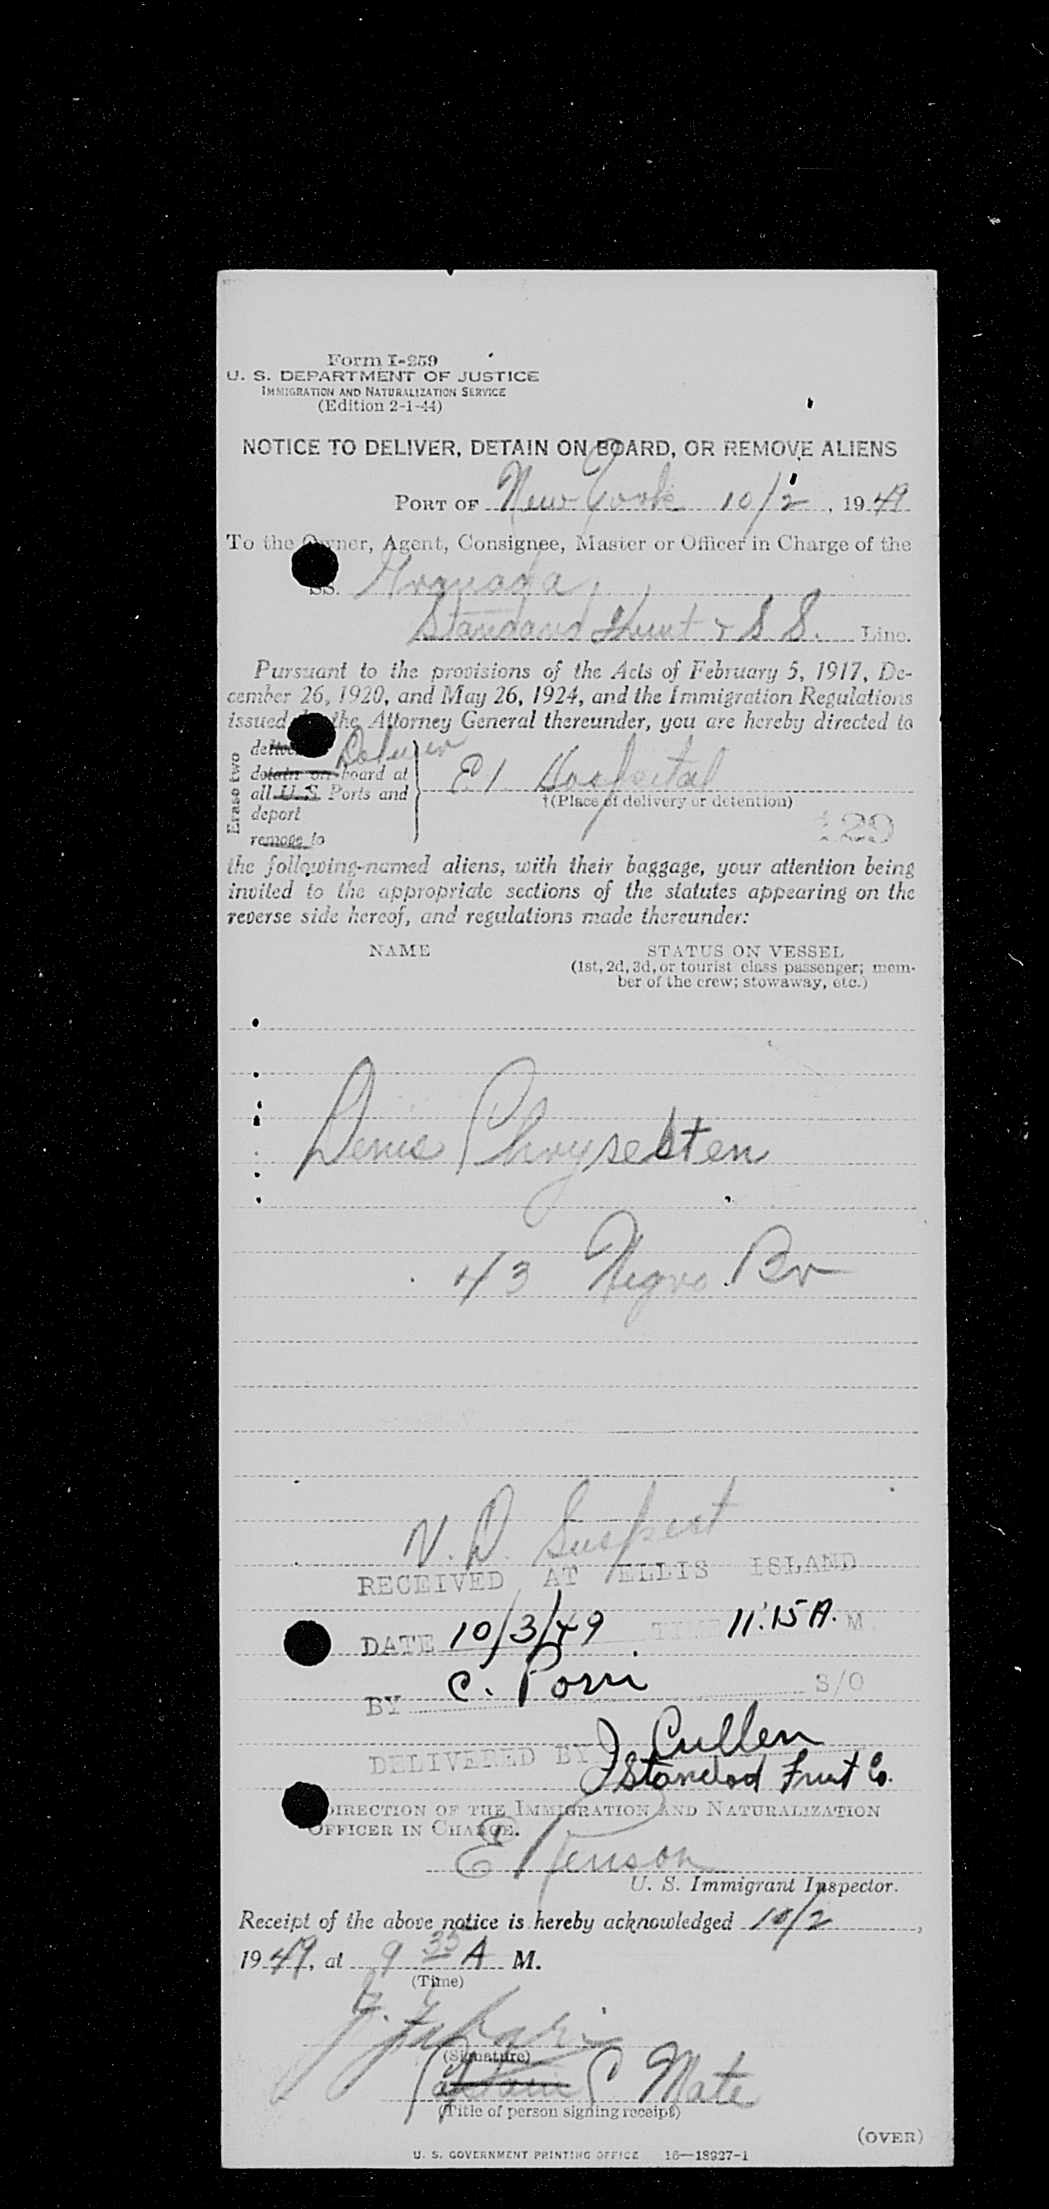 Form I-259
U. S. DEPARTMENT OF JUSTICE
IMMIGRATION AND NATURALIZATION SERVICE
(Edition 2-1-44)
NOTICE TO DELIVER, DETAIN ON BOARD, OR REMOVE ALIENS
PORT OF New York 10/2, 1949
To the Owner, Agent, Consignee, Master or Officer in Charge of the
SS. Granada
Standard Fruit & S S. Line.
Pursuant to the provisions of the Acts of February 5, 1917, De-
cember 26, 1920, and May 26, 1924, and the Immigration Regulations
issued by the Attorney General thereunder, you are hereby directed to
Erase two
deliver Deliver
detain on board at
all U. S. Ports and
deport
remove to
E. I. Hospital
†(Place of delivery or detention)
129
the following-named aliens, with their baggage, your attention being
invited to the appropriate sections of the statutes appearing on the
reverse side hereof, and regulations made thereunder:
NAME STATUS ON VESSEL
(1st, 2d, 3d, or tourist class passenger; mem-
ber of the crew; stowaway, etc.)
Denis Chrysesten
43 Negro Br
V. D. Suspect
RECEIVED AT ELLIS ISLAND
DATE 10/3/49 TIME 11:15 A. M.
BY C. Porri S/O
DELIVERED BY J Cullen
Standard Fruit Co.
DIRECTION OF THE IMMIGRATION AND NATURALIZATION
OFFICER IN CHARGE.
E
U. S. Immigrant Inspector.
Receipt of the above notice is hereby acknowledged 10/2,
1949, at 9 35 A M.
(Time)
(Signature)
C Mate
(Title of person signing receipt)
(OVER)
U. S. GOVERNMENT PRINTING OFFICE 16—18927-1